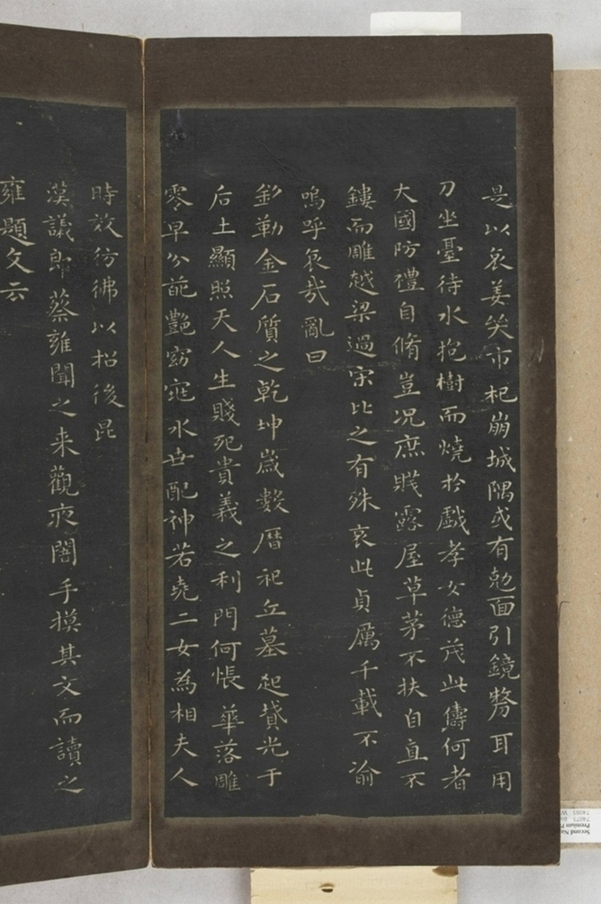 是以哀姜哭市杞崩城隅或有尅面引鏡剺耳用
刀坐臺待水抱樹而燒於戲孝女德茂此儔何者
大國防禮自脩豈況庶賤露屋草茅不扶自直不
鏤而雕越梁過宋比之有殊哀此貞厲千載不渝
嗚呼哀哉亂曰
銘勒金石質之乾坤歲數曆祀立墓起墳光于
后土顯照天人生賤死貴義之利門何悵華落雕
零早分葩艷窈窕永世配神若堯二女為相夫人
時效彷彿以招後昆
漢議郎蔡雍聞之来觀夜闇手摸其文而讀之
雍題文云